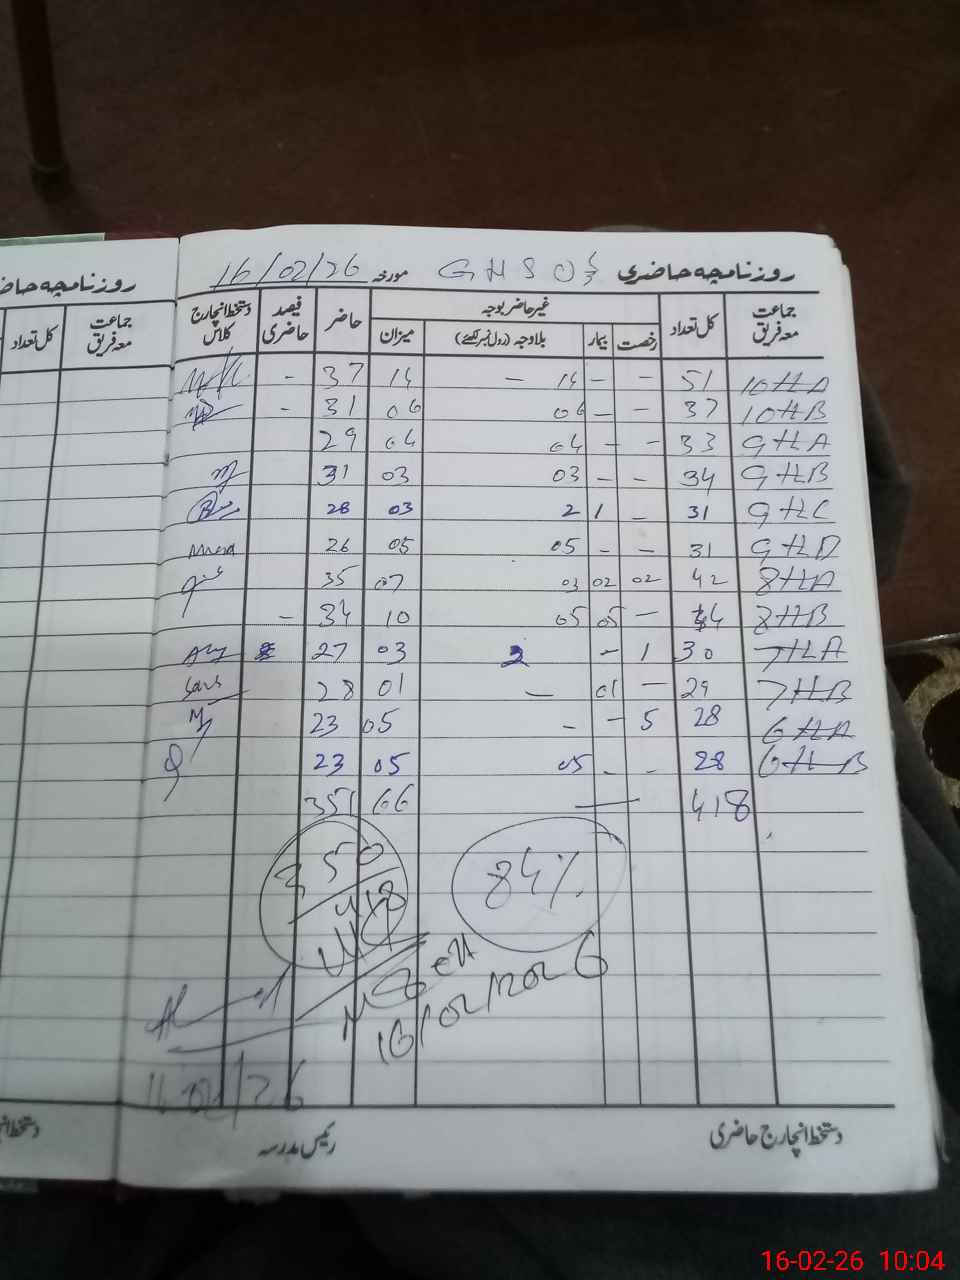 روزنامچہ حاضری GHSO مورخہ 16/02/26
جماعت معہ فریق کل تعداد غیر حاضر بوجہ حاضر فیصد حاضری دستخط انچارج کلاس
رخصت بیمار بلاوجہ (رول نمبر لکھئے) میزان
10th A 51 - - 14 - 14 37 -
10th B 37 - - 06 06 31 -
9th A 33 - - 04 04 29
9th B 34 - - 03 03 31
9th C 31 - 1 2 03 28
9th D 31 - - 05 05 26
8th A 42 02 02 03 07 35
8th B 44 - 05 05 10 34 -
7th A 30 1 - 2 03 27
7th B 29 - 01 - 01 28
6th A 28 5 - - 05 23
6th B 28 - - 05 05 23
418 66 351
350
418
84%
16/02/2026
16/02/26
دستخط انچارج حاضری رئیس مدرسہ
روزنامچہ
جماعت معہ فریق کل تعداد
16-02-26 10:04